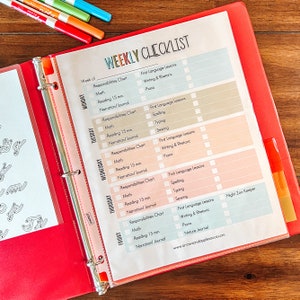 WEEKLY CHECKLIST
Week of
MONDAY
Responsibilities Chart First Language Lessons
Math Writing & Rhetoric
Reading 15 min. Piano
Narration/Journal
TUESDAY
Responsibilities Chart First Language Lessons
Math Spelling
Reading 15 min. Typing
Narration/Journal Sewing
Responsibilities Chart First Language Lessons
Math Writing & Rhetoric
Reading 15 min. Piano
Narration/Journal
Responsibilities Chart First Language Lessons
Math Spelling
Reading 15 min. Typing
Narration/Journal Sewing
FRIDAY
Responsibilities Chart First Language Lessons
Math Writing & Rhetoric
Reading 15 min. Piano
Narration/Journal Nature Journal